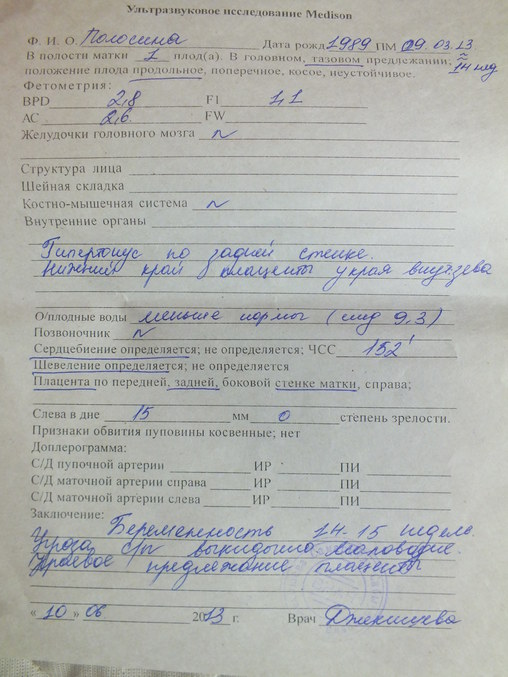 Ультразвуковое исследование Medison
Ф. И. О. Полосина Дата рожд 1989 ПМ 09.03.13
В полости матки 1 плод(а). В головном, тазовом предлежании, ≈
положение плода продольное, поперечное, косое, неустойчивое. 14 нед
Фетометрия:
BPD 2,8 F1 1,1
АС 2,6 FW
Желудочки головного мозга N
Структура лица
Шейная складка
Костно-мышечная система N
Внутренние органы
Гипертонус по задней стенке.
Нижний край плаценты у края внутр.зева
О/плодные воды меньше нормы (9,3)
Позвоночник N
Сердцебиение определяется; не определяется; ЧСС 152'
Шевеление определяется; не определяется
Плацента по передней, задней, боковой стенке матки, справа;
Слева в дне 15 мм 0 степень зрелости.
Признаки обвития пуповины косвенные; нет
Доплерограмма:
С/Д пупочной артерии ИР ПИ
С/Д маточной артерии справа ИР ПИ
С/Д маточной артерии слева ИР ПИ
Заключение:
Беременность 14-15 недель.
Угроза с/п выкидыша. Маловодие.
Краевое предлежание плаценты
« 10 » 06 2013 г. Врач